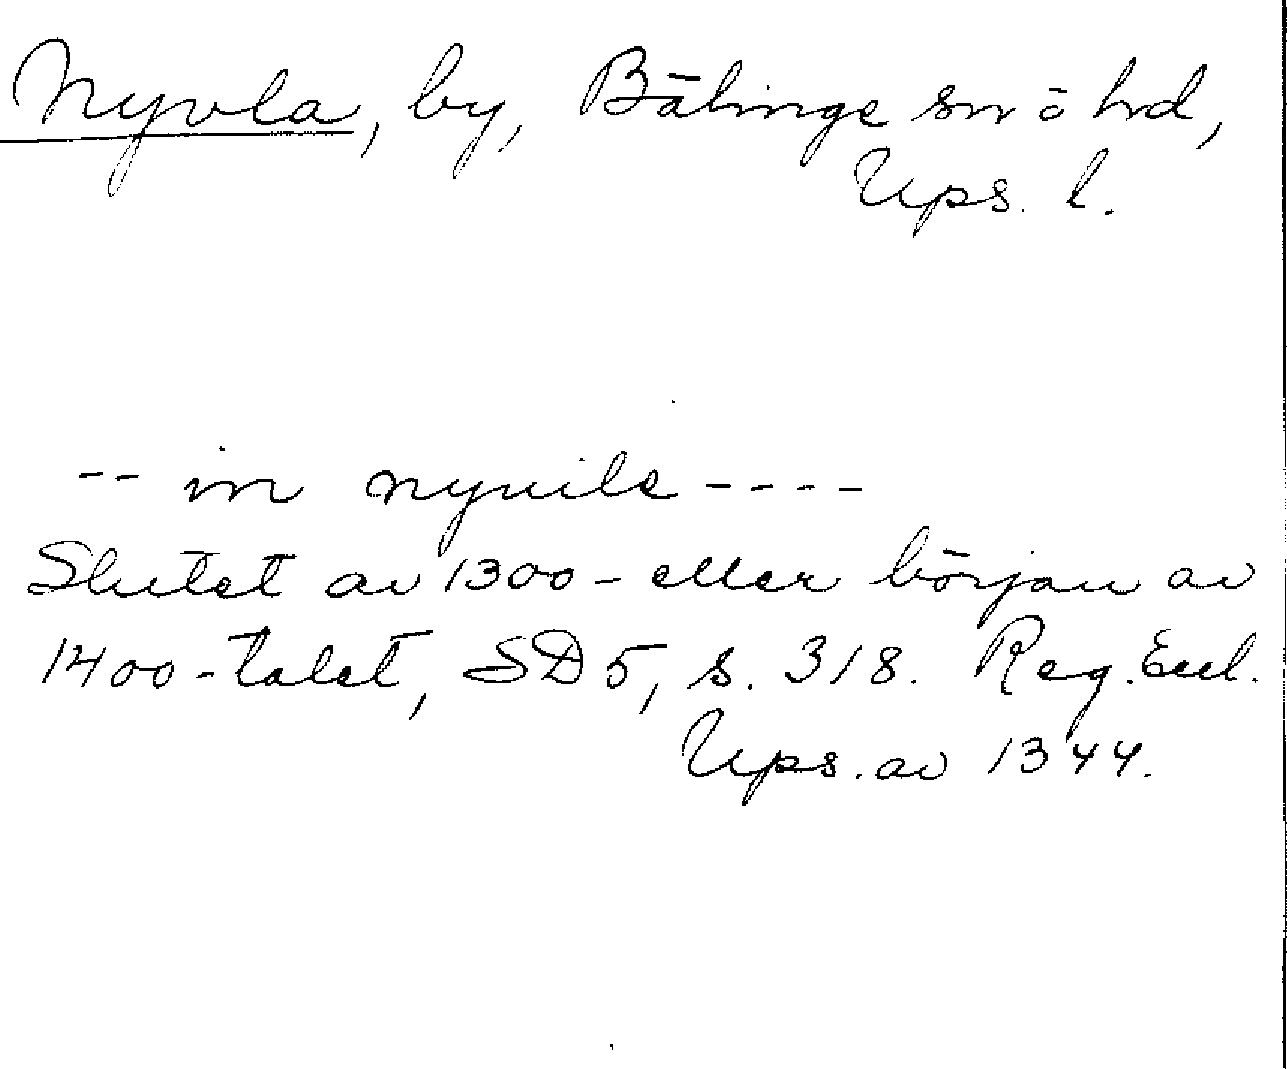 Nyvla, by, Bälinge sn ö hd,
Ups. l.
-- in nyuile ----
Slutet av 1300- eller början av
1400-talet, SD 5, s. 318. Reg. Eccl.
Ups. av 1344.